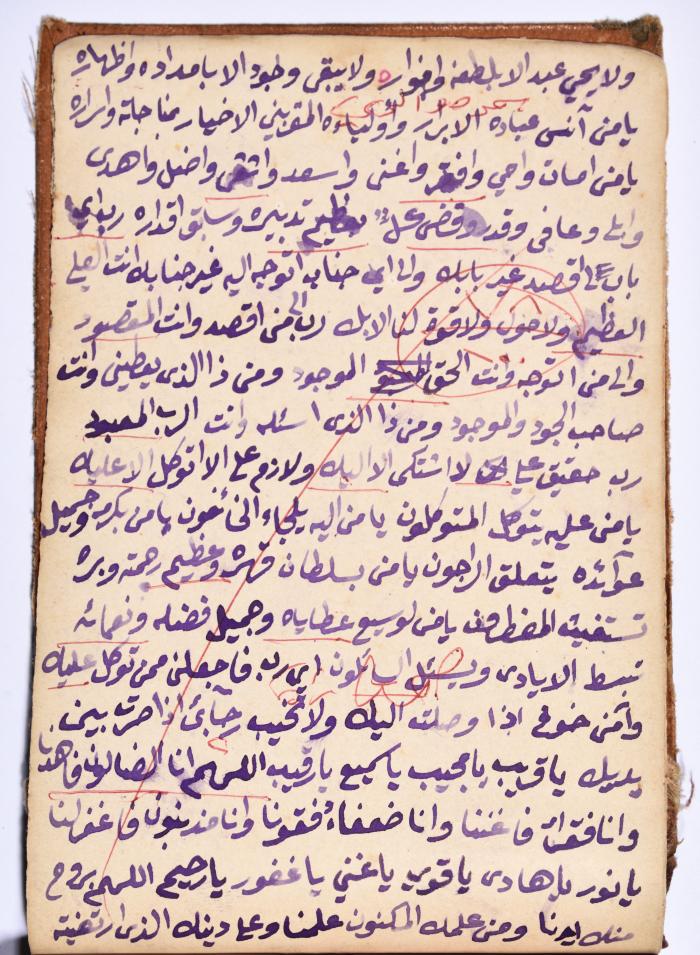 ولا يحيي عبد الا بلطفه وانواره ولا يبقى وجود الا بامداده واظهاره
يا من آنس عباده الابرار واولياءه المقربين الاخيار بمناجاته واسراره
يا من امات واحي وافقر واغنى واسعد واشقى واضل واهدى
وابلى وعافى وقدر وقضى كل بعظيم تدبيره وسابق اقداره رب اي
باب اقصد غير بابك والى اي جناب اتوجه اليه غير جنابك انت العلي
العظيم ولا حول ولا قوة لنا الا بك رب الى من اقصد وانت المقصود
والى من اتوجه وانت الحق الموجود ومن ذا الذى يعطيني وانت
صاحب الجود والموجود ومن ذا الذى اسئله وانت الرب المعبود
رب حقيق علي لا اشتكى الا اليك ولازم علي الا اتوكل الا عليك
يا من عليه يتوكل المتوكلون يا من اليه يلجاء الخائفون يا من بكرمه وجميل
عوآئده يتعلق الراجون يا من بسلطان قهره وعظيم رحمته وبره
تستغيث المضطرون يا من لوسيع عطاياه وجميل فضله ونعمائه
تبسط الايادى ويسئل السائلون اي رب فاجعلني ممن توكل عليك
وآمن خوفي اذا وصلت اليك ولا تخيب رجآئى اذا صرت بين
يديك يا قريب يا مجيب يا سميع يا رقيب اللهم انا الضالون فاهدنا
وانا فقرآء فاغننا وانا ضعفاء فقونا وانا مذنبون فاغفر لنا
يا نور يا هادى يا قوي يا غني يا غفور يا رحيم اللهم بروح
منك ايدنا ومن علمك المكنون علمنا وعلى دينك الذى ارتضيته